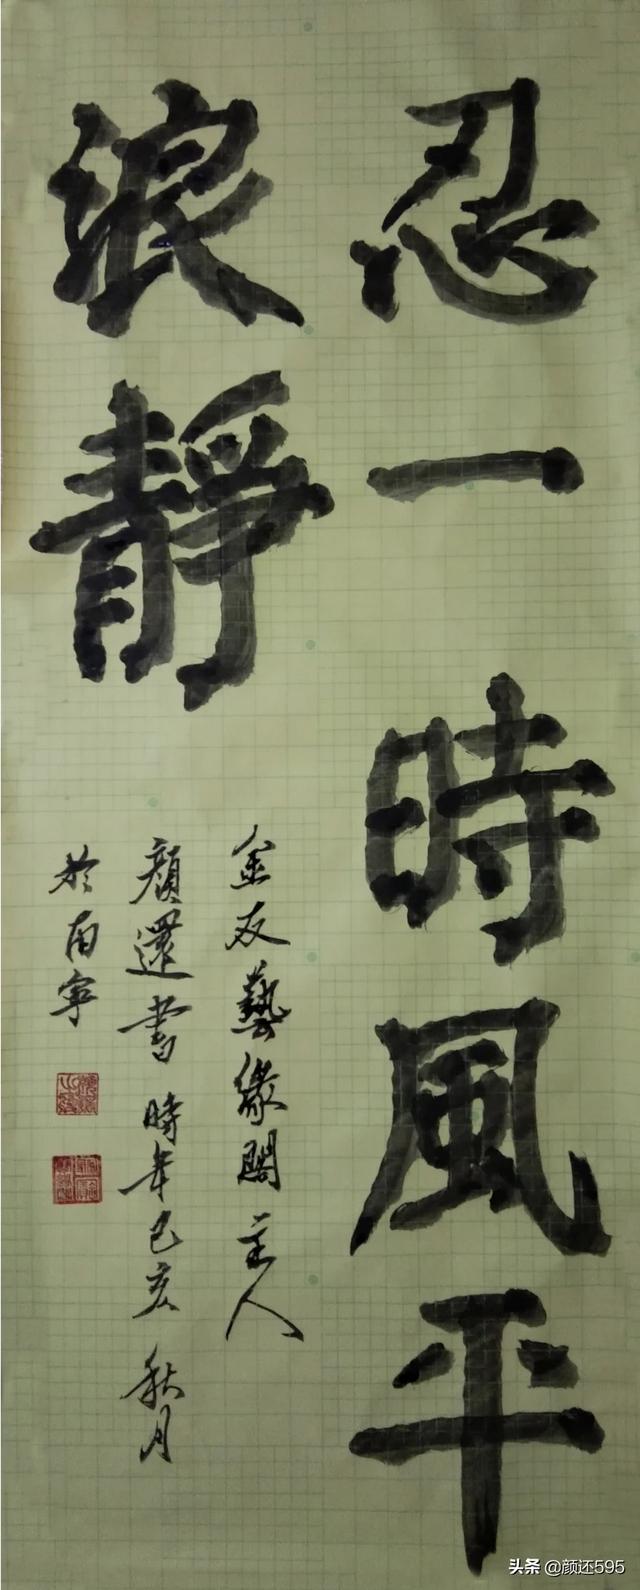 忍一時風平
浪靜
金友藝緣閣主人
顏還書時年己亥秋月
於南寧
头条 @颜还595